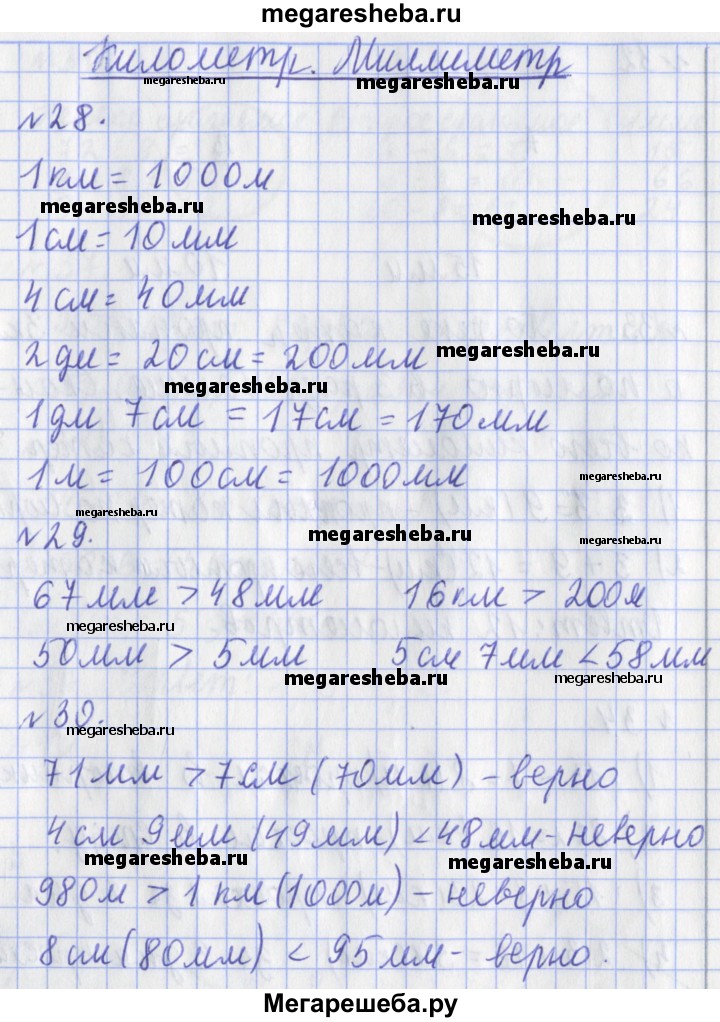 megaresheba.ru
Километр. Миллиметр
megaresheba.ru megaresheba.ru
№28.
1км = 1000м
megaresheba.ru megaresheba.ru
1см = 10мм
4см = 40мм
2дм = 20см = 200мм megaresheba.ru
megaresheba.ru
1дм 7см = 17см = 170мм
1м = 100см = 1000мм
megaresheba.ru megaresheba.ru
№29. megaresheba.ru megaresheba.ru
67мм > 48мм 16км > 200м
megaresheba.ru megaresheba.ru
50мм > 5мм 5см 7мм < 58мм
megaresheba.ru megaresheba.ru
№30.
megaresheba.ru
71мм > 7см (70мм) - верно
4см 9мм (49мм) < 48мм - неверно
megaresheba.ru megaresheba.ru
980м > 1км (1000м) - неверно
8см (80мм) < 95мм - верно.
Мегарешеба.ру